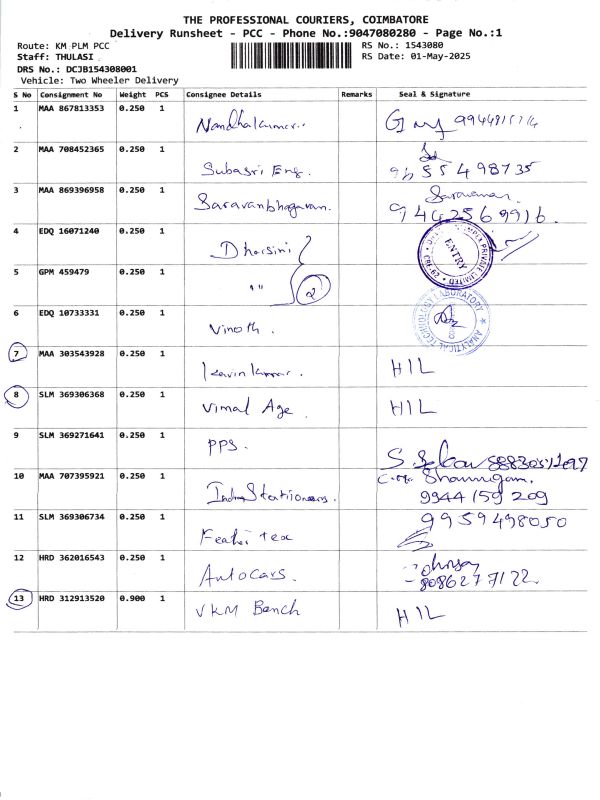 THE PROFESSIONAL COURIERS, COIMBATORE
Delivery Runsheet - PCC - Phone No.:9047080280 - Page No.:1
Route: KM PLM PCC RS No.: 1543080
Staff: THULASI RS Date: 01-May-2025
DRS No.: DCJB154308001
Vehicle: Two Wheeler Delivery
S No Consignment No Weight PCS Consignee Details Remarks Seal & Signature
1 MAA 867813353 0.250 1 Nandhakumar.
2 MAA 708452365 0.250 1 Subasri Eng.
9655498735
3 MAA 869396958 0.250 1 Saravanbhagavan. Saravanan
9442569916.
4 EDQ 16071240 0.250 1 Dharsini PRIVATE LIMITED ENTRY CBE-62
5 GPM 459479 0.250 1 " 2
6 EDQ 10733331 0.250 1 Vinoth. ANALYTICAL TECHNOLOGY LABORATORY
7 MAA 303543928 0.250 1 Kavinkumar. HIL
8 SLM 369306368 0.250 1 Vimal Age. HIL
9 SLM 369271641 0.250 1 PPS.
10 MAA 707395921 0.250 1 Indra Stationeers. Shanmugam.
9944 159 209
11 SLM 369306734 0.250 1 tex 9959498050
12 HRD 362016543 0.250 1 AutoCars.
8086277122
13 HRD 312913520 0.900 1 VKM Bench HIL